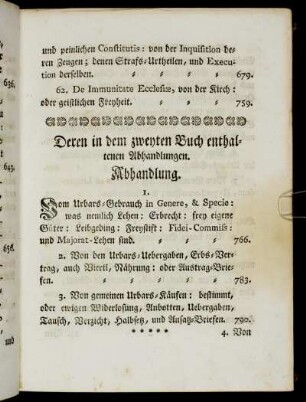 und peinlichen Constitutis: von der Inquisition de-
ren Zeugen; denen Strafs-Urtheilen, und Execu-
tion derselben. 679.
62. De Immunitate Ecclesiæ, von der Kirch:
oder geistlichen Freyheit. 759.
Deren in dem zweyten Buch enthal-
tenen Abhandlungen.
Abhandlung.
1.
Vom Urbars-Gebrauch in Genere, & Specie:
was nemlich Lehen: Erbrecht: frey eigene
Güter: Leibgeding: Freystift: Fidei-Commiss:
und Majorat-Lehen sind. 766.
2. Von den Urbars-Uebergaben, Erbs-Ver-
trag, auch Viertl, Nahrung: oder Austrag-Brie-
fen. 783.
3. Von gemeinen Urbars-Käufen: bestimmt,
oder ewigen Widerlosung, Anbotten, Uebergaben,
Tausch, Verzicht, Halbsetz, und Ansatz-Briefen. 790.
* * * * * 4. Von